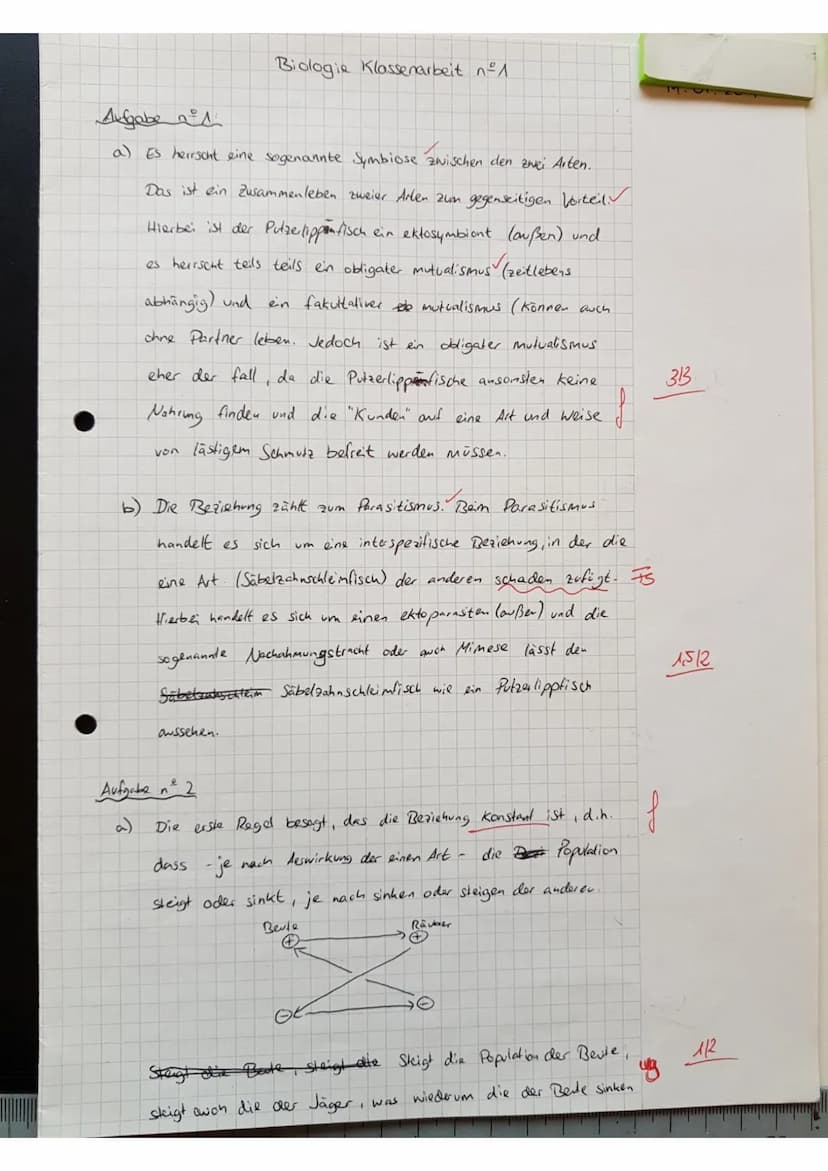 Biologie Klassenarbeit nº1
Aufgabe nº1:
a) Es herrscht eine sogenannte Symbiose zwischen den zwei Arten.
Das ist ein Zusammenleben zweier Arten zum gegenseitigen Vorteil.
Hierbei ist der Putzerlippfisch ein ektosymbiont (außen) und
es herrscht teils teils ein obligater mutualismus (zeitlebens
abhängig) und ein fakultativer mutualismus (können auch
ohne Partner leben. Jedoch ist ein obligater mutualismus
eher der fall, da die Putzerlippfische ansonsten keine
3/3
Nahrung finden und die "Kunden" auf eine Art und Weise f
von lästigem Schmutz befreit werden müssen.
b) Die Beziehung zählt zum Parasitismus. Beim Parasitismus
handelt es sich um eine interspezifische Beziehung, in der die
eine Art (Säbelzahnschleimfisch) der anderen schaden zufügt. FS
Hierbei handelt es sich um einen ektoparasiten (außen) und die
sogenannte Nachahmungstracht oder auch Mimese lässt den
1,5/2
Säbelzahnschleim Säbelzahnschleimfisch wie ein Putzerlippfisch
aussehen.
Aufgabe nº 2
a) Die erste Regel besagt, das die Beziehung konstant ist, d.h. f
dass - je nach Auswirkung der einen Art - die Population
steigt oder sinkt, je nach sinken oder steigen der anderen.
Beute Räuber
+ +
- -
Steigt die Beute, steigt die Steigt die Population der Beute,
1/2
steigt auch die der Jäger, was wiederum die der Beute sinken